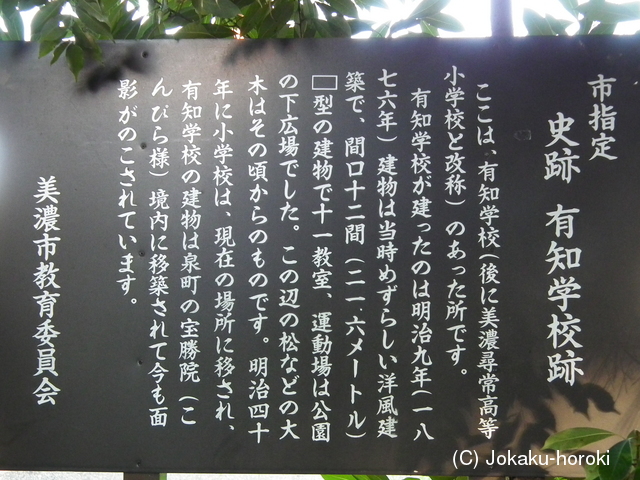 市指定
史跡 有知学校跡
ここは、有知学校(後に美濃尋常高等
小学校と改称)のあった所です。
有知学校が建ったのは明治九年(一八
七六年)建物は当時めずらしい洋風建
築で、間口十二間(二一・六メートル)
□型の建物で十一教室、運動場は公園
の下広場でした。この辺の松などの大
木はその頃からのものです。明治四十
年に小学校は、現在の場所に移され、
有知学校の建物は泉町の宝勝院(こ
んぴら様)境内に移築されて今も面
影がのこされています。
美濃市教育委員会
(C) Jokaku-horoki